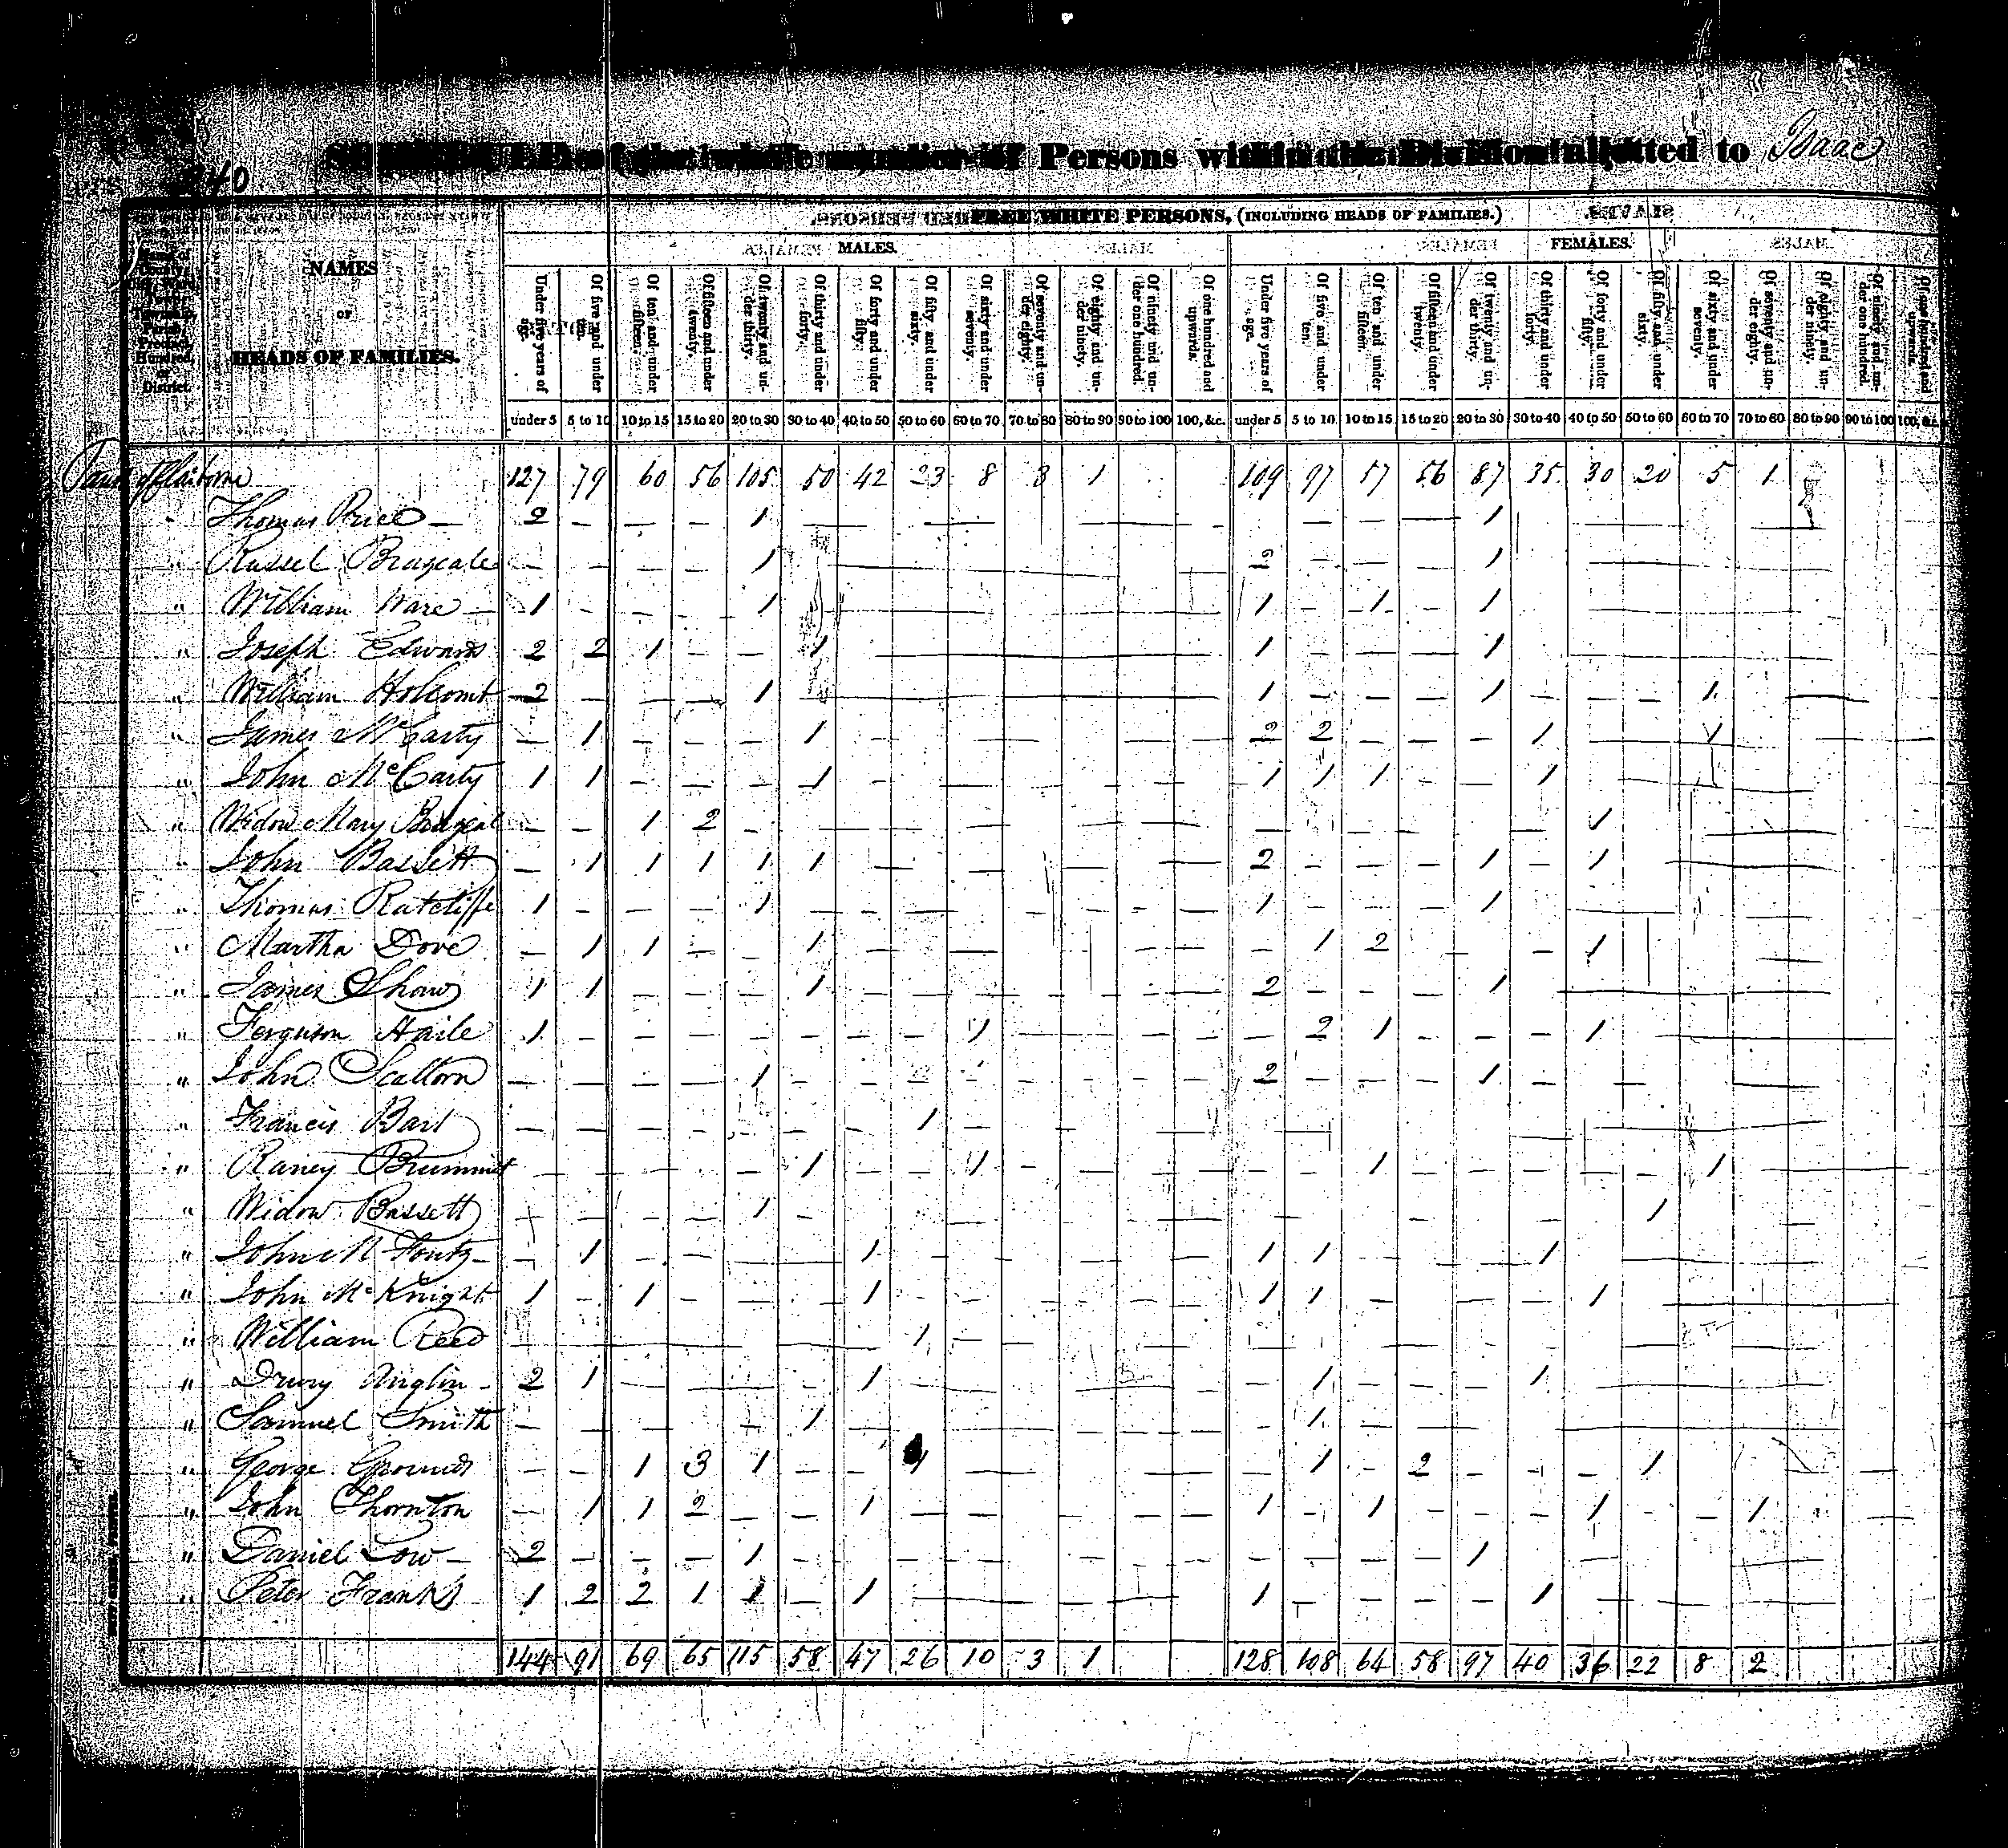 240
SCHEDULE of the whole number of Persons within the Division allotted to Isaac
FREE WHITE PERSONS, (INCLUDING HEADS OF FAMILIES.)
MALES. FEMALES.
Name of County, City, Ward, Town, Township, Parish, Precinct, Hundred, or District.
NAMES
OF
HEADS OF FAMILIES.
Under five years of age. Of five and under ten. Of ten and under fifteen. Of fifteen and under twenty. Of twenty and under thirty. Of thirty and under forty. Of forty and under fifty. Of fifty and under sixty. Of sixty and under seventy. Of seventy and under eighty. Of eighty and under ninety. Of ninety and under one hundred. Of one hundred and upwards. Under five years of age. Of five and under ten. Of ten and under fifteen. Of fifteen and under twenty. Of twenty and under thirty. Of thirty and under forty. Of forty and under fifty. Of fifty and under sixty. Of sixty and under seventy. Of seventy and under eighty. Of eighty and under ninety. Of ninety and under one hundred. Of one hundred and upwards.
under 5 5 to 10 10 to 15 15 to 20 20 to 30 30 to 40 40 to 50 50 to 60 60 to 70 70 to 80 80 to 90 90 to 100 100, &c. under 5 5 to 10 10 to 15 15 to 20 20 to 30 30 to 40 40 to 50 50 to 60 60 to 70 70 to 80 80 to 90 90 to 100 100, &c.
Claiborne 127 79 60 56 105 50 42 23 8 3 1 109 97 57 56 87 35 30 20 5 1
Thomas Price 2 — — — 1 — — — 1
" Russel Brazeale — — — — 1 — 2 — — — 1
" William Ware 1 — — — 1 — 1 — 1 — 1
" Joseph Edwards 2 2 1 — — 1 — 1 — — — 1
" William Holcomb 2 — — — 1 — 1 — — — 1 — — — 1
" James McCarty — 1 — — — 1 — 2 2 — — — 1 — 1
" John McCarty 1 1 — — — 1 — 1 1 1 — — 1
" Widow Mary Brazeal — — 1 2 — — — — — 1
" John Bassett — 1 1 1 1 1 — 2 — — — 1 — 1
" Thomas Ratcliffe 1 — — — 1 — 1 — — — 1
" Martha Dove — 1 1 — — 1 — — 1 2 — — — 1
" James Shaw 1 1 — — — 1 — 2 — — — 1
" Ferguson Haile 1 — — — — — — — 1 — — 2 1 — — — 1
" John Scallorn — — — — 1 — 2 — — — 1 —
" Francis Bart — — — — — — — 1 —
" Raney Brummit — — — — — 1 — — 1 — — — 1 — — — — — 1
" Widow Bassett — — — — 1 — — — — — — — — 1
" John N Foutz — 1 — — — — 1 — 1 1 — — — 1
" John McKnight 1 — 1 — — — 1 — 1 1 — — — — 1
" William Reed — 1 —
" Drury Anglin 2 1 — — — — 1 — — 1 — — — 1
" Samuel Smith — — — — — 1 — — 1 —
" George Grounds — — 1 3 1 — — 1 — — 1 — 2 — — — 1
" John Thornton — 1 1 2 — — 1 — 1 — 1 — — — 1 — — 1
" Daniel Low 2 — — — 1 — — — — — 1
" Peter Franks 1 2 2 1 1 — 1 — 1 — — — — 1
144 91 69 65 115 58 47 26 10 3 1 128 108 64 58 97 40 36 22 8 2